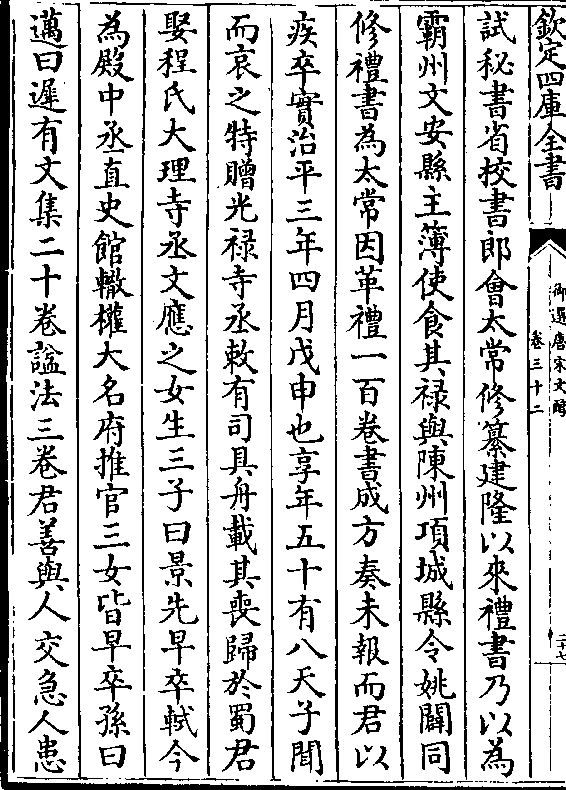 欽定四庫全書
御選唐宋文醇
卷三十二
二十七
試秘書省校書郎會太常修纂建隆以來禮書乃以為
霸州文安縣主簿使食其祿與陳州項城縣令姚闢同
修禮書為太常因革禮一百卷書成方奏未報而君以
疾卒實治平三年四月戊申也享年五十有八天子聞
而哀之特贈光祿寺丞敕有司具舟載其喪歸於蜀君
娶程氏大理寺丞文應之女生三子曰景先早卒軾今
為殿中丞直史館轍權大名府推官三女皆早卒孫曰
邁曰遲有文集二十卷諡法三卷君善與人交急人患